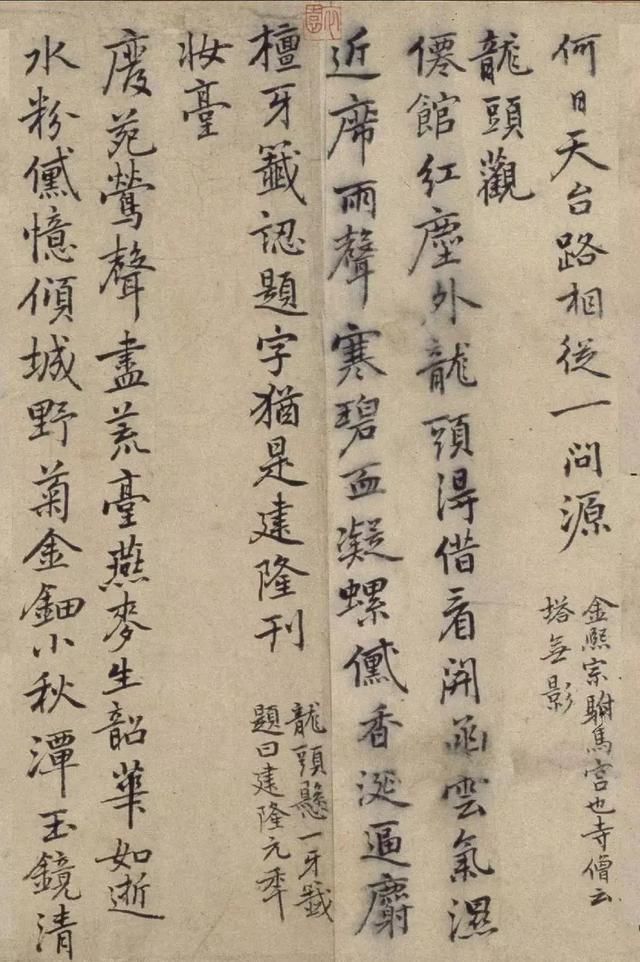 何日天台路相從一問源
金熙宗駙馬宮也寺僧云
塔無影
龍頭觀
僊館紅塵外龍頭淂借看開函雲氣濕
近席雨聲寒碧血凝螺黛香涎逼麝
檀牙籤認題字猶是建隆刊
龍頭懸一牙籤
題曰建隆元年
妝臺
廢苑鶯聲盡荒臺燕麥生韶華如逝
水粉黛憶傾城野菊金鈿小秋潭玉鏡清